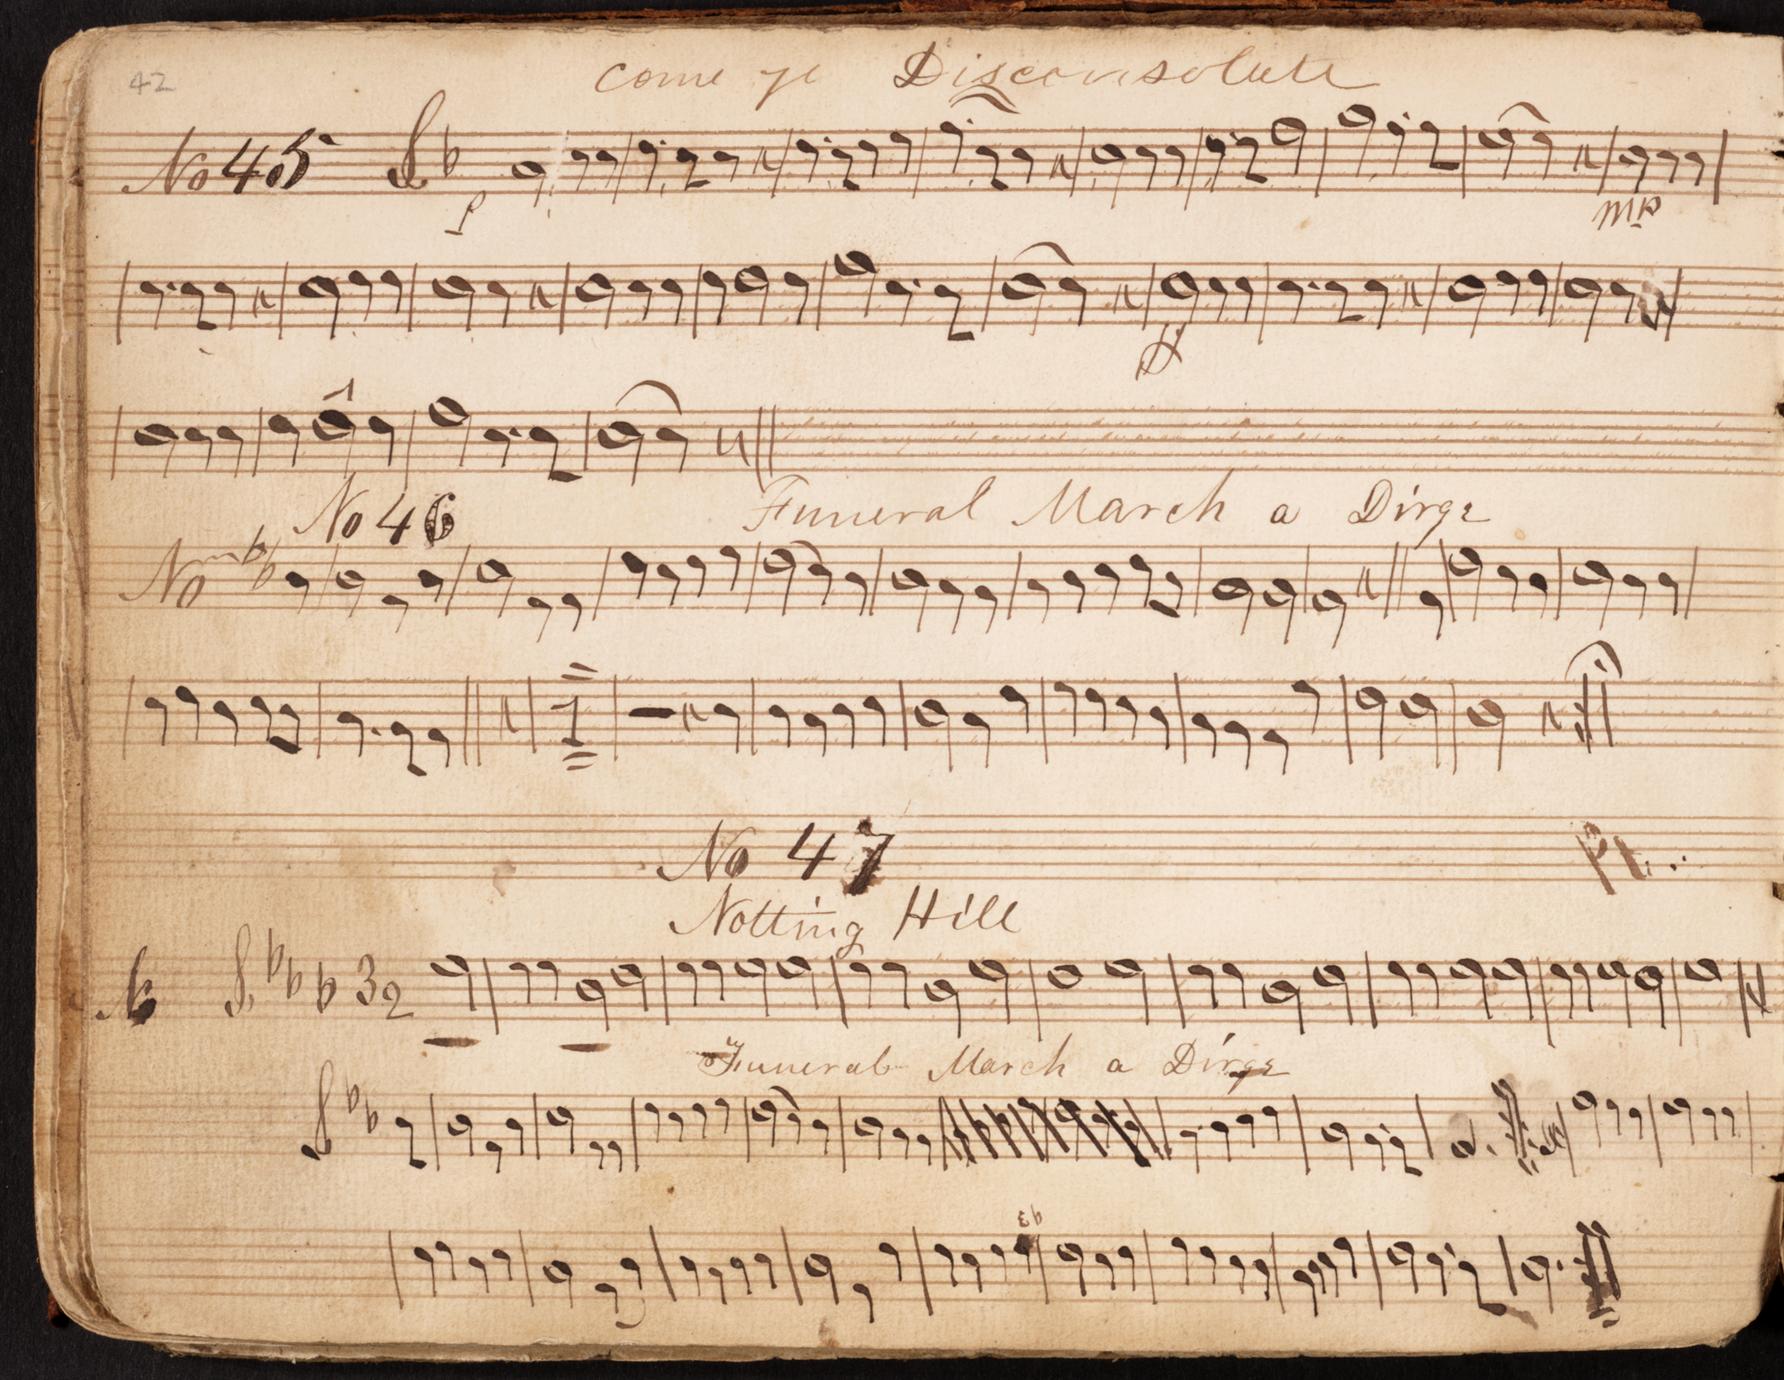 42
come ye Disconsolate
No 45
p
mp
ff
No 46 Funeral March a Dirge
No
1
No 47
Notting Hill
3 2
Funeral March a Dirge